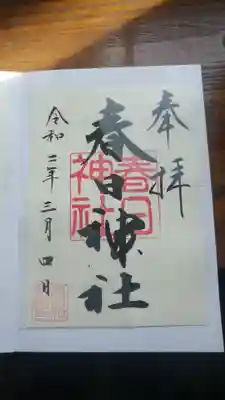 奉拝
春日神社
春日
神社
令和二年三月四日